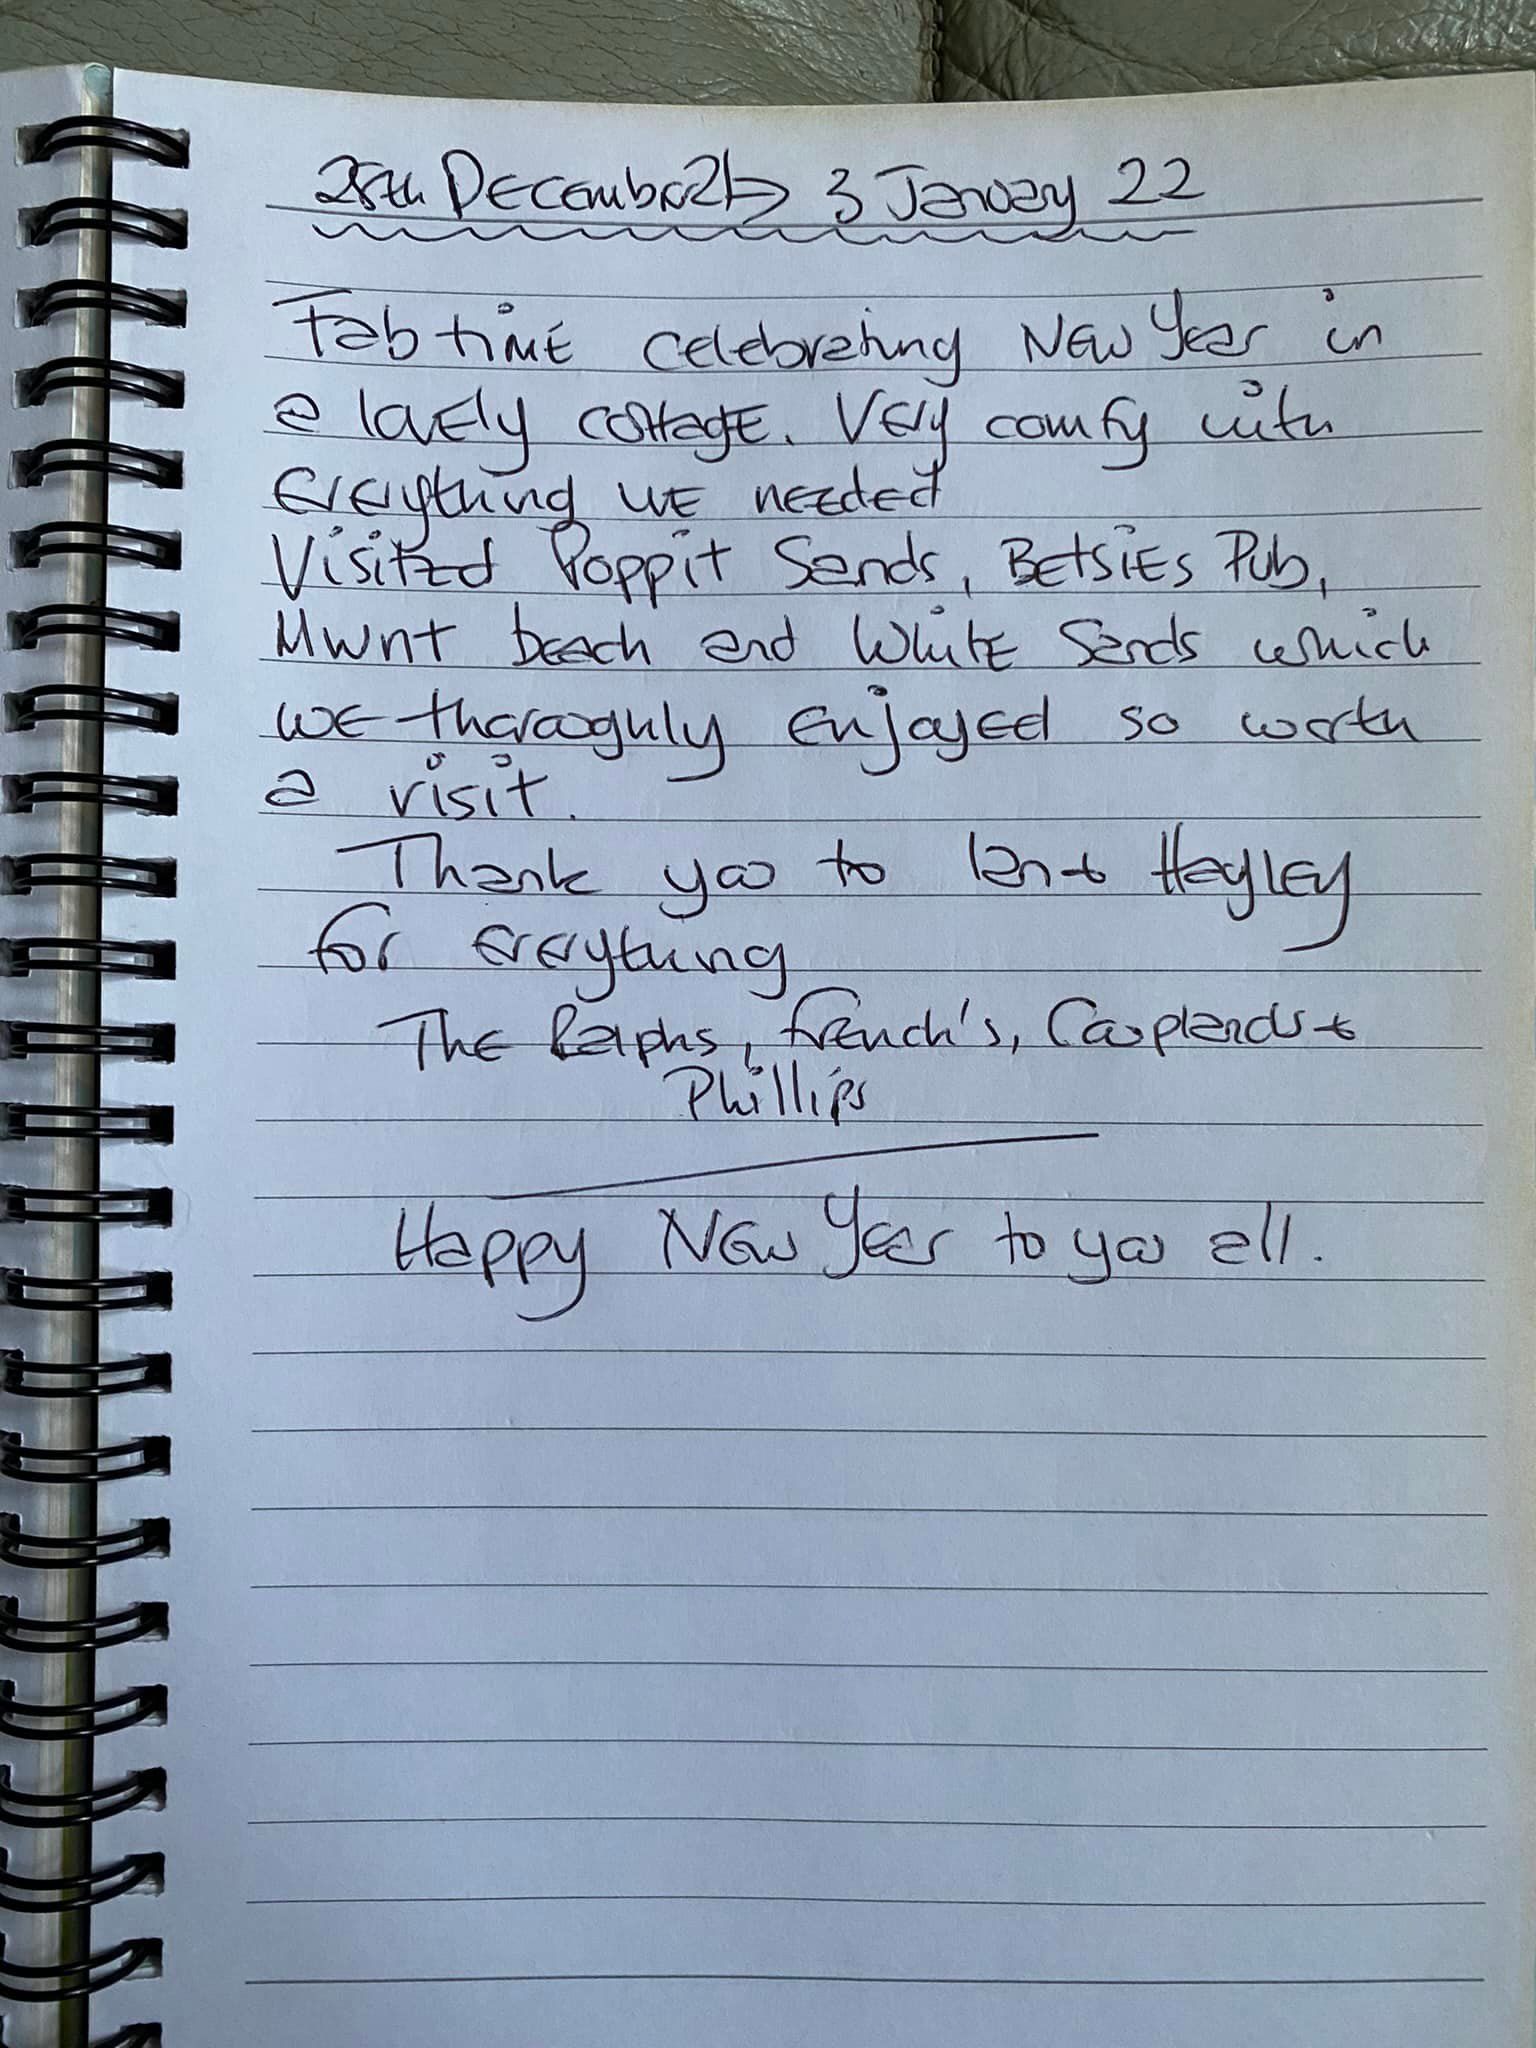 28th December 21 → 3 January 22
Fab time celebrating New Year in
a lovely cottage. Very comfy with
everything we needed
Visited Poppit Sands, Betsies Pub,
Mwnt beach and White Sands which
we thoroughly enjoyed so worth
a visit.
Thank you to Ian + Hayley
for everything
The Ralphs, French's, Couplands +
Phillips
Happy New Year to you all.